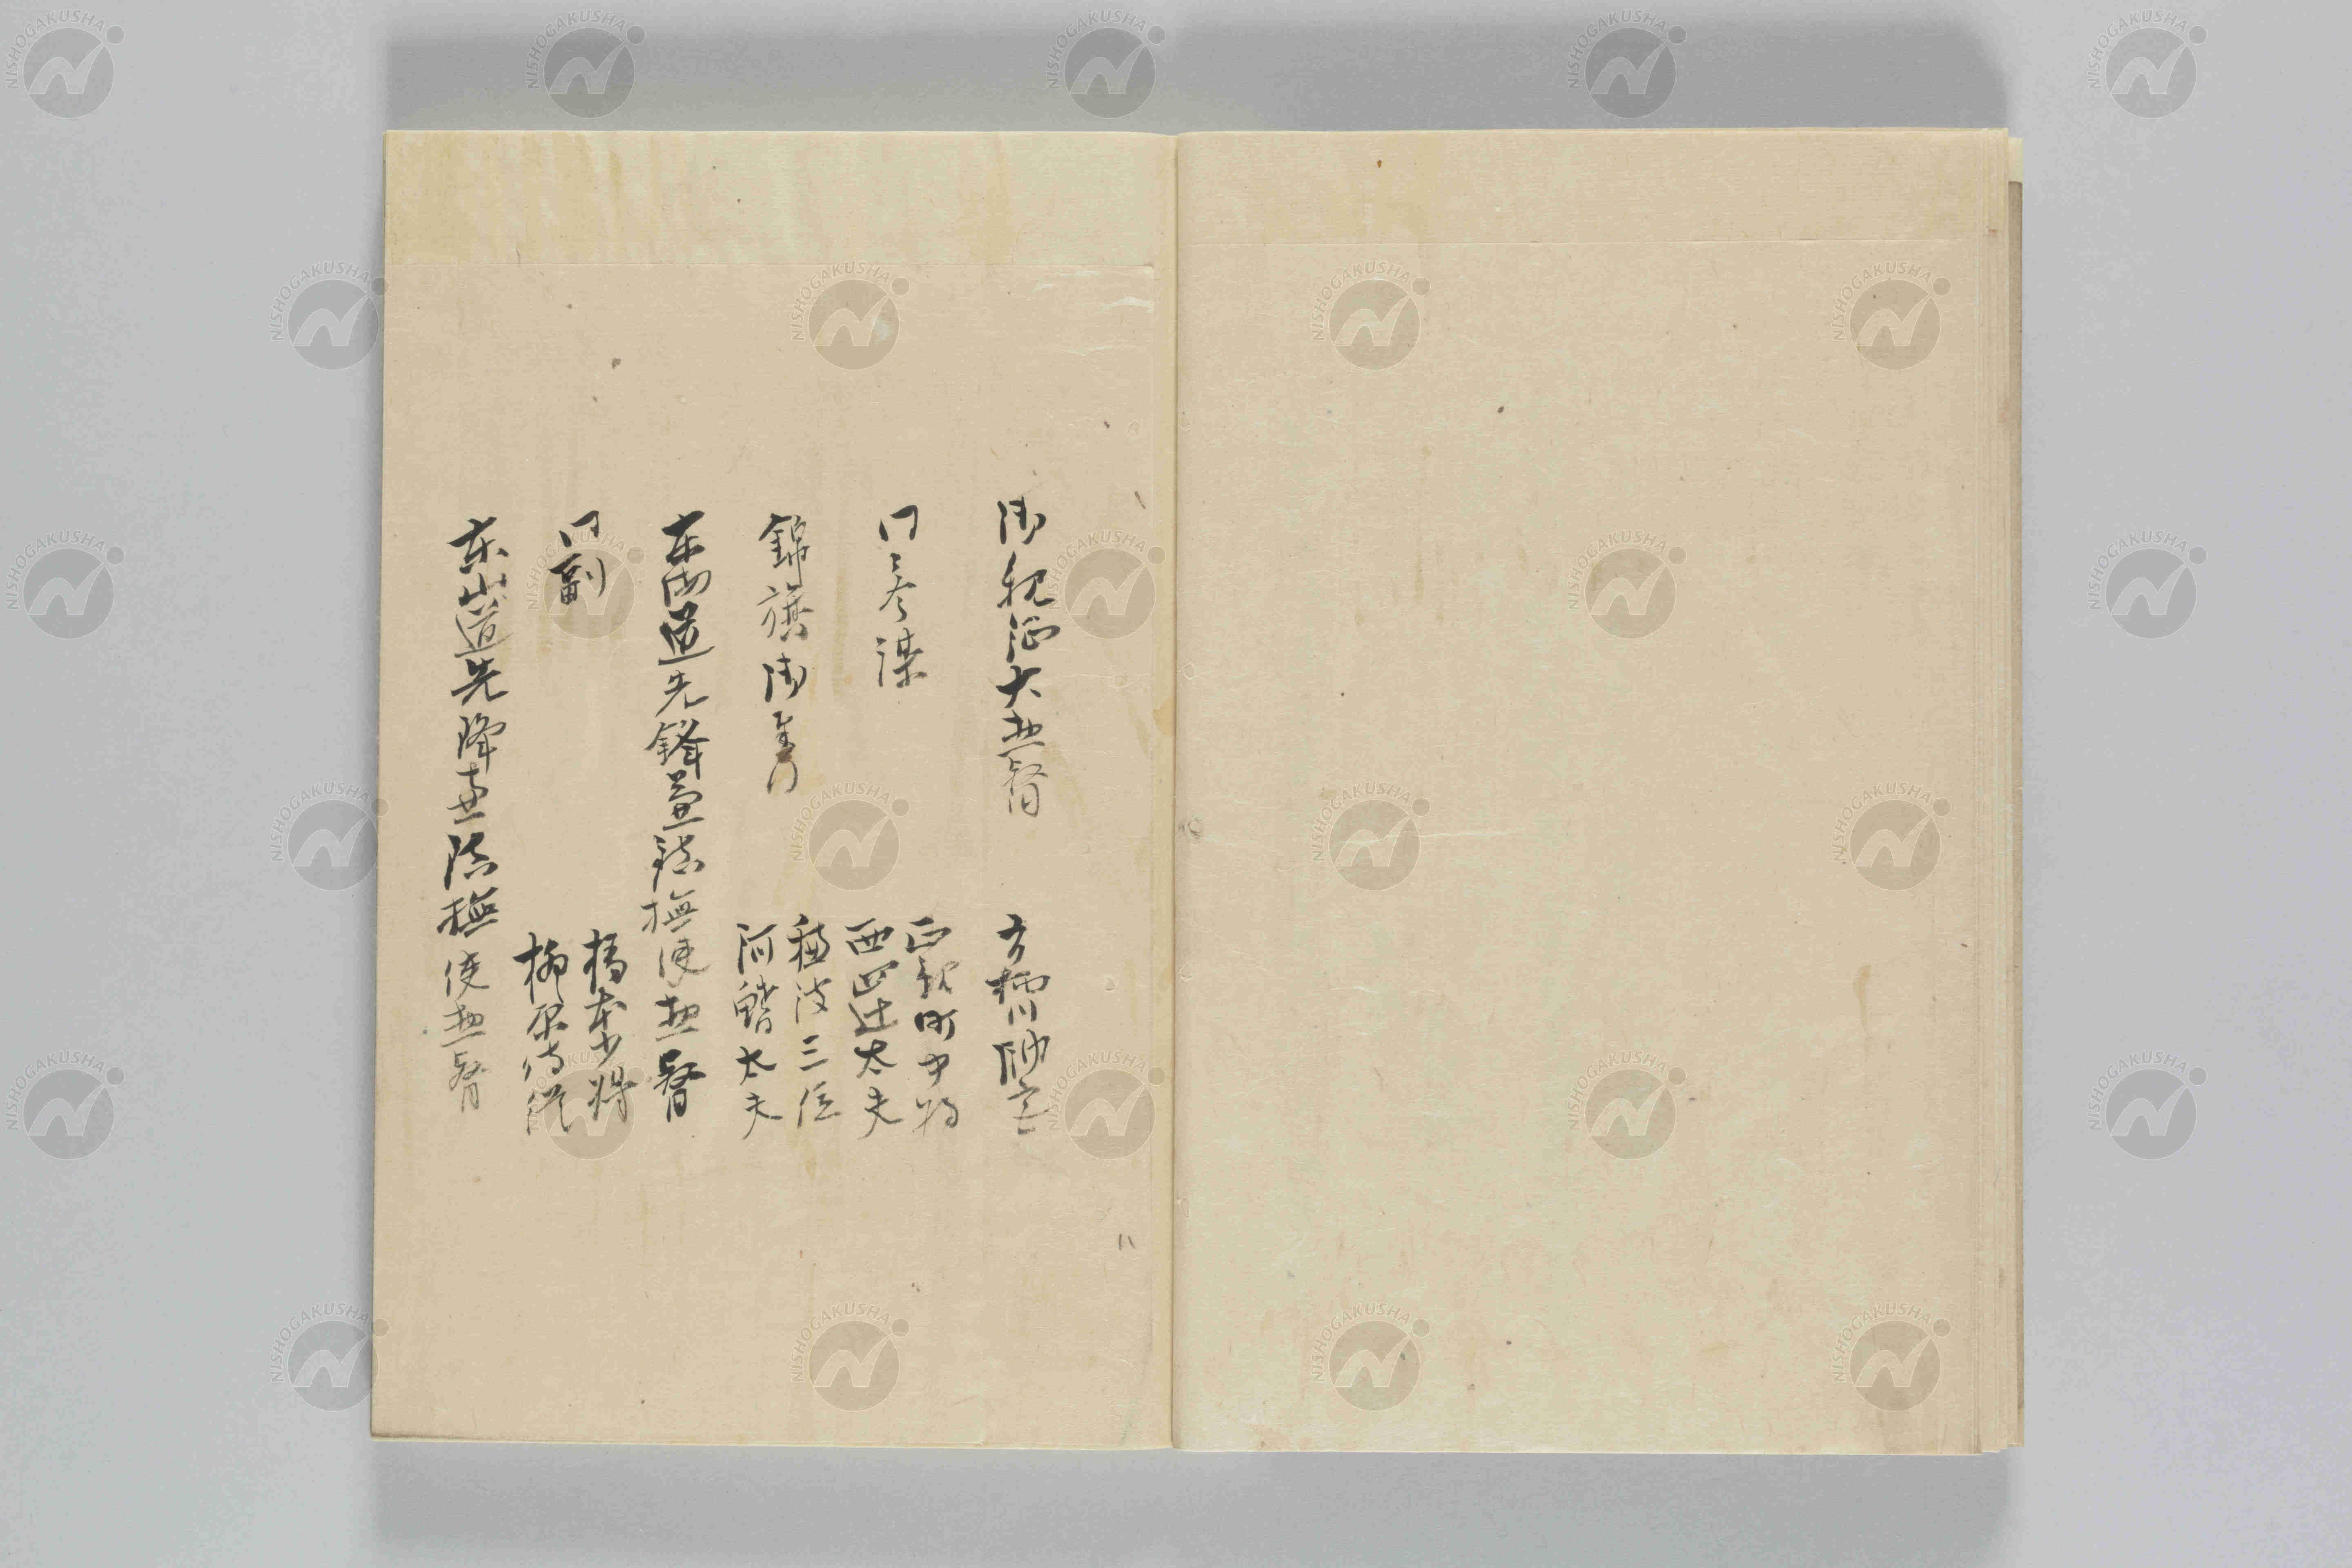 御親征大惣督
有栖川帥宮
同参謀
正親町中将
西四辻太夫
錦旗御奉行
穂波三位
河鰭太夫
東海道先鋒並鎮撫使惣督
同副
橋本少将
柳原侍従
東山道先降並鎮撫使惣督
NISHOGAKUSHA